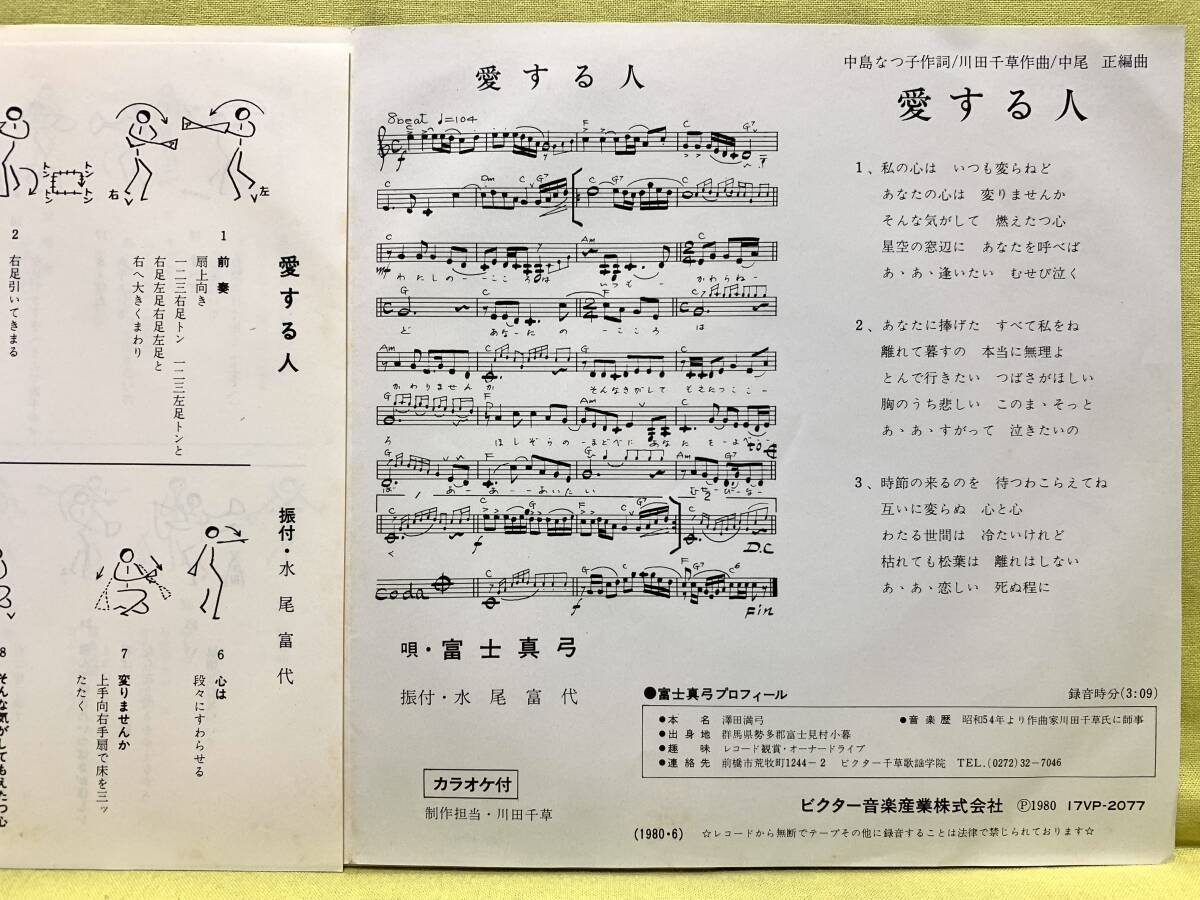 愛する人
右
左
トン
トン
トン
トン
1 前奏
扇上向き
一二三右足トン 一二三左足トンと
右足左足右足左足と
右へ大きくまわり
2 右足引いてきまる
振付・水尾富代
6 心は
段々にすわらせる
7 変りませんか
上手向右手扇で床を三ッ
たたく
8 そんな気がしてもえたつ心
愛する人
8beat ♩=104
C F C G7
f
C Dm C G7 C
C Am C
mf わたしの―こころは いつも― かわらね―
G C F C
ど あな―たの―こころ は
Am F G7 C
かわりませんか そんなきがして もえたつここ―
G F Am C
ろ ほしぞらの―まどべに あなた を―よべ―
to
Am F G7 Am G7
ば あ―あ―あいたい むせ―び―な―
C F C G7 C
く f D.C
coda C F C G7 C6
f Fin
唄・富士真弓
振付・水尾富代
カラオケ付
制作担当・川田千草
中島なつ子作詞/川田千草作曲/中尾 正編曲
愛する人
1、私の心は いつも変らねど
あなたの心は 変りませんか
そんな気がして 燃えたつ心
星空の窓辺に あなたを呼べば
あゝあゝ逢いたい むせび泣く
2、あなたに捧げた すべて私をね
離れて暮すの 本当に無理よ
とんで行きたい つばさがほしい
胸のうち悲しい このまゝそっと
あゝあゝすがって 泣きたいの
3、時節の来るのを 待つわこらえてね
互いに変らぬ 心と心
わたる世間は 冷たいけれど
枯れても松葉は 離れはしない
あゝあゝ恋しい 死ぬ程に
●富士真弓プロフィール 録音時分(3:09)
●本名 澤田満弓 ●音楽歴 昭和54年より作曲家川田千草氏に師事
●出身地 群馬県勢多郡富士見村小暮
●趣味 レコード観賞・オーナードライブ
●連絡先 前橋市荒牧町1244-2 ビクター千草歌謡学院 TEL.(0272)32-7046
ビクター音楽産業株式会社 Ⓟ1980 17VP-2077
(1980・6) ☆レコードから無断でテープその他に録音することは法律で禁じられております☆